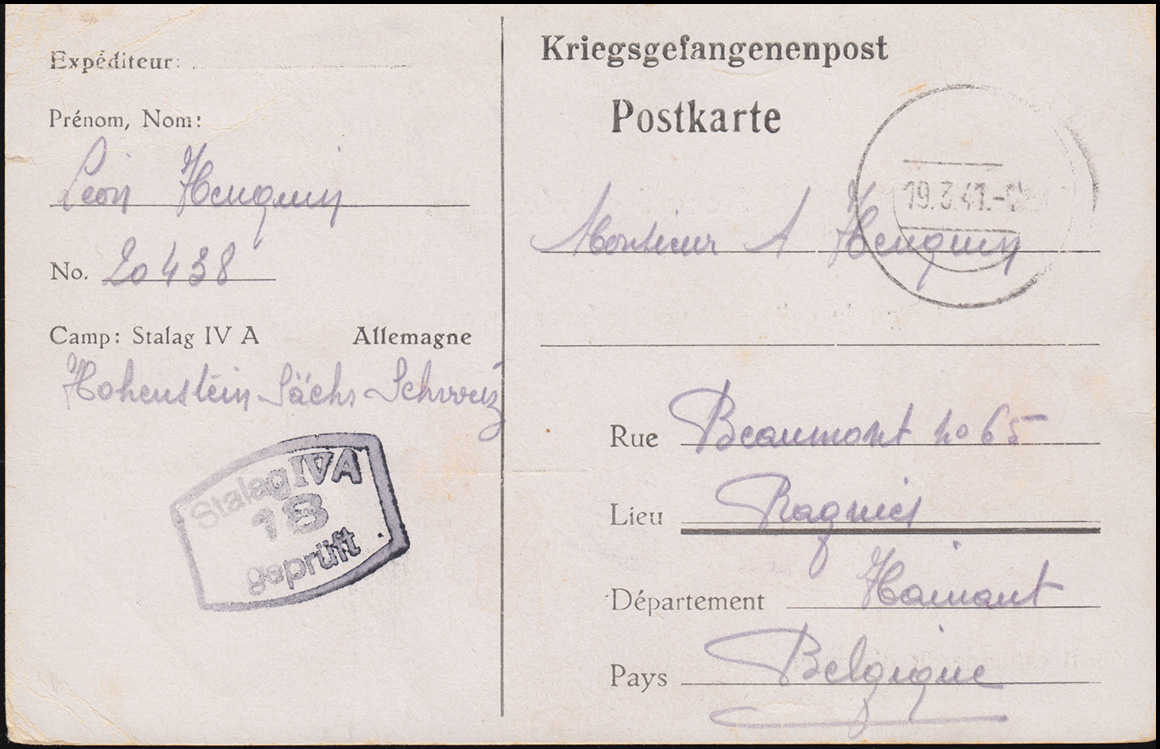 Expéditeur:
Prénom, Nom:
Léon Henquin
No. 20438
Camp: Stalag IV A Allemagne
Hohenstein Sächs Schweiz
Stalag IVA
18
geprüft
Kriegsgefangenenpost
Postkarte
19.3.41.-
Monsieur A Henquin
Rue Beaumont no 65
Lieu Ragnies
Département Hainaut
Pays Belgique